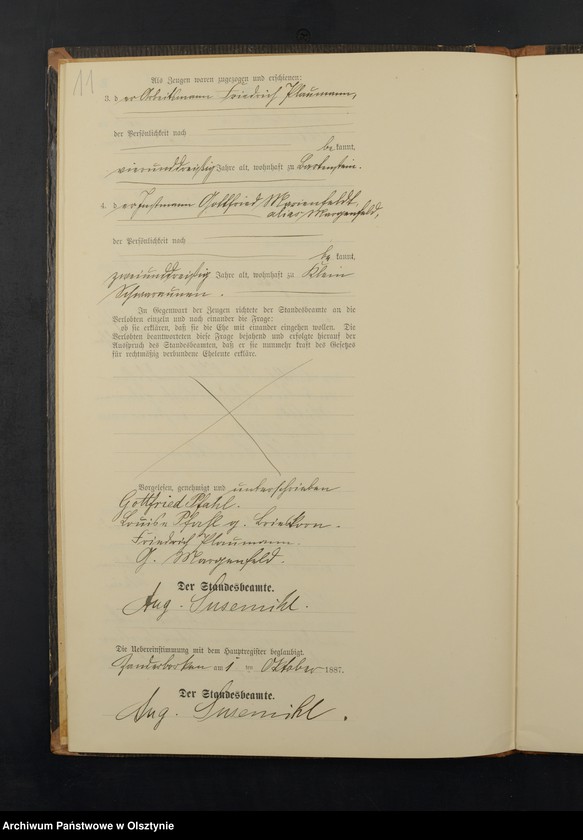 11
Als Zeugen waren zugezogen und erschienen:
3. der Arbeitsmann Friedrich Plaumann,
der Persönlichkeit nach
bekannt,
vierunddreißig Jahre alt, wohnhaft zu Bartenstein.
4. der Instmann Gottfried Marienfeldt
alias Margenfeld,
der Persönlichkeit nach
bekannt,
zweiunddreißig Jahre alt, wohnhaft zu Klein
Schwaraunen.
In Gegenwart der Zeugen richtete der Standesbeamte an die
Verlobten einzeln und nach einander die Frage:
ob sie erklären, daß sie die Ehe mit einander eingehen wollen. Die
Verlobten beantworteten diese Frage bejahend und erfolgte hierauf der
Ausspruch des Standesbeamten, daß er sie nunmehr kraft des Gesetzes
für rechtmäßig verbundene Eheleute erkläre.
Vorgelesen, genehmigt und unterschrieben
Gottfried Pfahl.
Louise Pfahl g. Brieskorn.
Friedrich Plaumann.
G. Margenfeld.
Der Standesbeamte.
Aug. Susemihl.
Die Uebereinstimmung mit dem Hauptregister beglaubigt.
am 1 ten Oktober 1887.
Der Standesbeamte.
Aug. Susemihl.
Archiwum Państwowe w Olsztynie